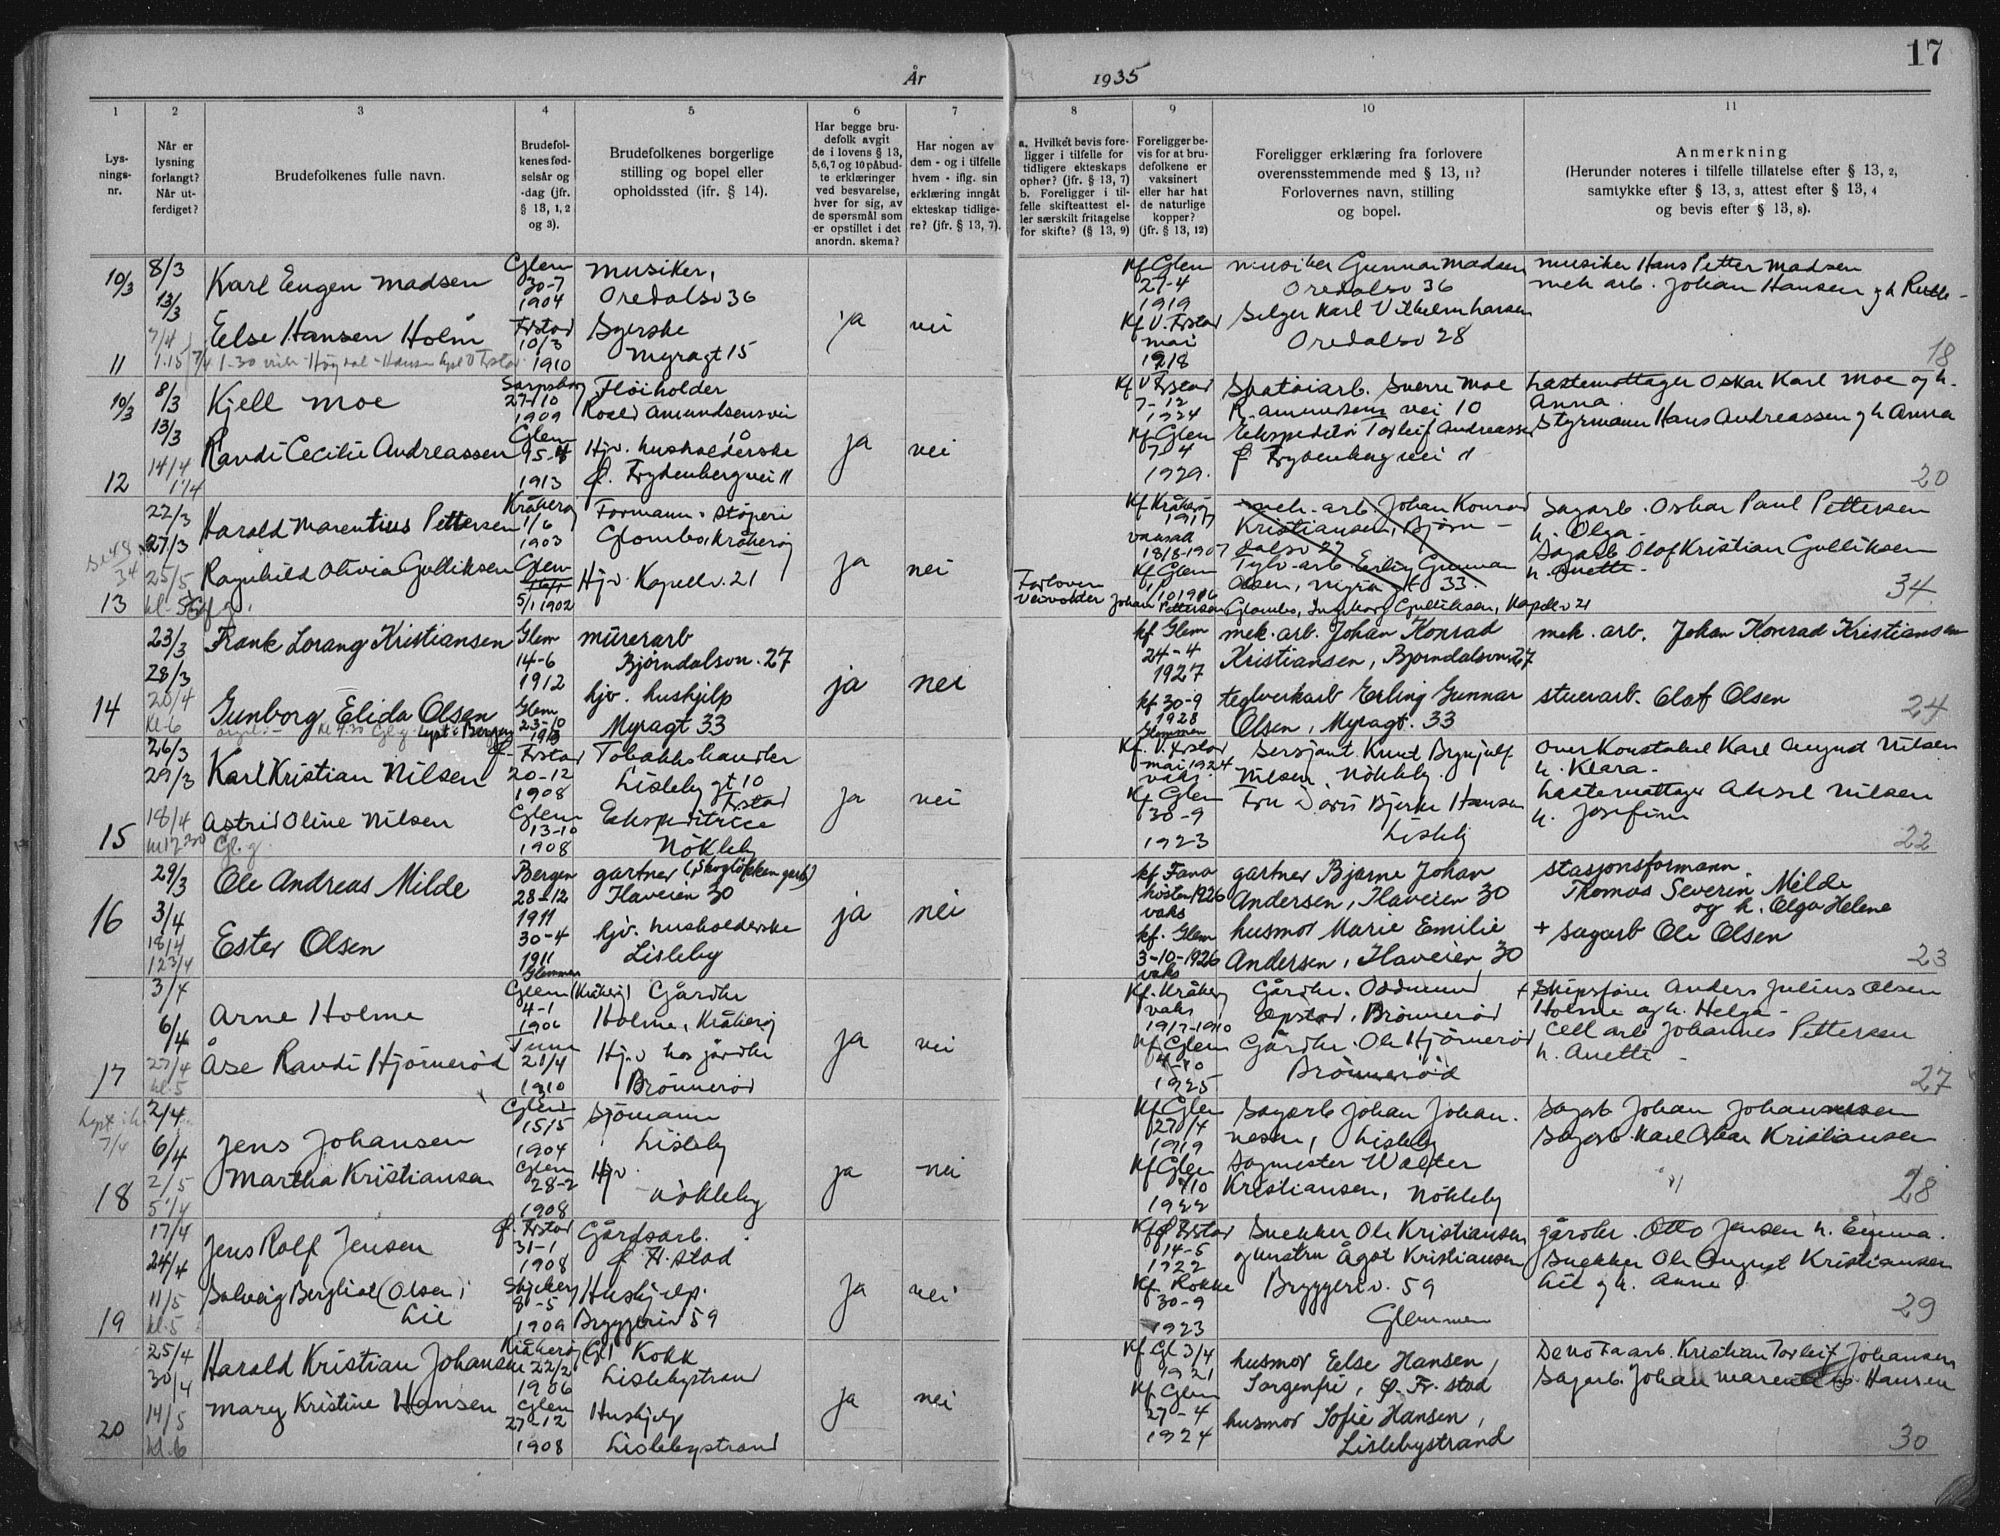 År 1935
17
1
Lys-
nings-
nr.
2
Når er
lysning
forlangt?
Når ut-
ferdiget?
3
Brudefolkenes fulle navn.
4
Brudefol-
kenes fød-
selsår og
-dag (jfr.
§ 13, 1, 2
og 3).
5
Brudefolkenes borgerlige
stilling og bopel eller
opholdssted (jfr. § 14).
6
Har begge bru-
defolk avgit
de i lovens § 13,
5, 6, 7 og 10 påbud-
te erklæringer
ved besvarelse,
hver for sig, av
de spørsmål som
er opstillet i det
anordn. skema?
7
Har nogen av
dem - og i tilfelle
hvem - iflg. sin
erklæring inngåt
ekteskap tidlige-
re? (jfr. § 13, 7).
8
a. Hvilket bevis fore-
ligger i tilfelle for
tidligere ekteskaps
ophør? (jfr. § 13, 7)
b. Foreligger i til-
felle skifteattest el-
ler særskilt fritagelse
for skifte? (§ 13, 9)
9
Foreligger be-
vis for at bru-
defolkene er
vaksinert
eller har hat
de naturlige
kopper?
(jfr. § 13, 12)
10
Foreligger erklæring fra forlovere
overensstemmende med § 13, 11?
Forlovernes navn, stilling
og bopel.
11
Anmerkning
(Herunder noteres i tilfelle tillatelse efter § 13, 2,
samtykke efter § 13, 3, attest efter § 13, 4
og bevis efter § 13, 8).
10/3
11
8/3
13/3
7/4
Karl Eugen Madsen
Else Hansen Holm
Glem
30-7
1904
Frstad
10/3
1910
musiker,
Oredalsv 36
Syerske
Myragt 15
ja
nei
Kf Glem
27-4
1919
Kf V. Frstad
mai
1918
musiker Gunnar Madsen
Oredalsv 36
Selger Karl Vilhelm Hansen
Oredalsv 28
musiker Hans Petter Madsen
mek arb. Johan Hansen
18
10/3
12
8/3
13/3
14/4
Kjell Moe
Randi Cecilie Andreassen
Sarpsborg
27-10
1909
Glem
1913
Fløiholder
Roald Amundsensvei
10
Hjv. husholderske
Ø. Frydenbergvei 11
ja
nei
Kf V Frstad
7-12
1924
Kf Glem
7-4
1929.
Skotøiarb. Sverre Moe
R. Amundsens vei 10
Ekspeditør Torleif Andreassen
Ø Frydenberg vei 11
Lastemottager Oskar Karl Moe og h.
Anna.
Styrmann Hans Andreassen g h Anna
20
13
22/3
27/3
25/5
Harald Marentius Pettersen
Ragnhild Olivia Gulliksen
Kråkerøy
1/6
1903
Glem
5/1 1902
Formann i støperi
Glombo, Kråkerøy
Hjv. Kapellv. 21
ja
nei
Kf Kråkerøy
1917
18/8-1907
Kf Glem
1/10 1916
mek-arb. Johan Konrad
Kristiansen, Bjørn-
dalsv 27
Tglv-arb Erling Gunnar
Olsen, Myragt 33.
Forlovere
Johan Pettersen Glombo, Ingeborg Gulliksen, Kapellv 21
Sagarb. Oskar Paul Pettersen
h. Olga.
Sagarb Olaf Kristian Gulliksen
h. Anette.
34.
14
23/3
28/3
20/4
kl-6
Frank Lorang Kristiansen
Gunborg Elida Olsen
Glem
14-6
1912
Glem
23-10
1913
mürerarb
Bjørndalsvn. 27
hjv. hushjelp
Myragt 33
ja
nei
kf Glem
24-4
1927
kf 30-9
1928
Glemmen
mek. arb. Johan Konrad
Kristiansen, Bjørndalsvn 27
teglverkarb Erling Gunnar
Olsen, Myragt. 33
mek. arb. Johan Konrad Kristiansen
stuerarb. Olaf Olsen
24
15
26/3
29/3
18/4
Karl Kristian Nilsen
Astrid Oline Nilsen
Ø-Frstad
20-12
1908
Glem
13-10
1908
Tobakkshandler
Lisleby gt 10
Frstad
Ekspeditrice
Nökleby
ja
nei
Kf. V. Frstad
mai 1924
vaks.
Kf Glem
30-9
1923
Sersjant Knut Brynjulf
Nilsen Nökleby.
Fru Doris Bjerke Hansen
Lisleby
Overkonstabel Karl August Nilsen
h. Klara.
Lastemottager Aksel Nilsen
h. Josefine
22
16
29/3
3/4
18/4
Ole Andreas Milde
Ester Olsen
Bergen
28-12
1911
30-4
1911
Glemmen
gartner (Skogløkken gartn)
Haveien 30
hjv. husholderske
Lisleby
ja
nei
kf Fana
høsten 1926
vaks
kf. Glem
3-10-1926
vaks
gartner Bjarne Johan
Andersen, Haveien 30
husmor Marie Emilie
Andersen, Haveien 30
stasjonsformann.
Thomas Severin Milde
og h. Olga Helene
+ sagarb Ole Olsen
23
17
3/4
6/4
27/4
kl.5
Arne Holme
Åse Randi Hjörnerød
Glem (Kråkerøy)
4-1
1906
Tune
21/4
1910
Gårdbr
Holme, Kråkerøy
Hjv hos gårdbr
Brönnerød
ja
nei
Kf. Kråkerøy
vaks
1917-1910
Kf Glem
4-10
1925
Gårdbr. Oddmund
Opstad, Brönnerød
Gårdbr. Ole Hjörnerød
Brönnerød
+ Skipsfører Anders Julius Olsen
Holme og h. Helga-
Cell arb Johannes Pettersen
h. Anette -
27
18
2/4
6/4
2/5
Jens Johansen
Martha Kristiansen
Glem
15/5
1904
Glem
28-2
1908
Sjömann
Lisleby
Hjv
Nökleby
ja
nei
Kf Glem
27/4
1919
Kf Glem
1922
Sagarb Johan Johan.
nesen, Lisleby
Sagmester Walter
Kristiansen, Nökleby
Sagarb Johan Johannesen
Sagarb. Karl Oskar Kristiansen
28
19
17/4
24/4
11/5
kl.5
Jens Rolf Jensen
Solveig Bergliot (Olsen)
Lie
Ø. Frstad
31-1
1908
Skjeberg
8-5
1909
Gårdsarb.
Ø Fr. stad
Hushjelp.
Bryggeriv 59
ja
nei
Kf Ø Frstad
14-5
1922
Kf. Rokke
30-9
1923
Snekker Ole Kristiansen
g hustru Ågot Kristiansen
Bryggeriv. 59
Glemmen
gårdbr. Otto Jensen h. Emma.
Snekker Ole August Kristiansen
Lie g h. Anne
29
20
25/4
30/4
14/5
kl.6
Harald Kristian Johansen
Mary Kristine Hansen
Kråkerøy
22/2
1906
Glem
27-12
1908
Kokk
Lislebystrand
Hushjelp
Lislebystrand
ja
nei
Kf Gl 3/4
1921
Kf Glem
27-4
1924
husmor Else Hansen,
Sorgenfri, Ø. Fr. stad
husmor Sofie Hansen,
Lislebystrand
De No Fa arb. Kristian Torleif Johansen
Sagarb. Johan Marentius Hansen
30